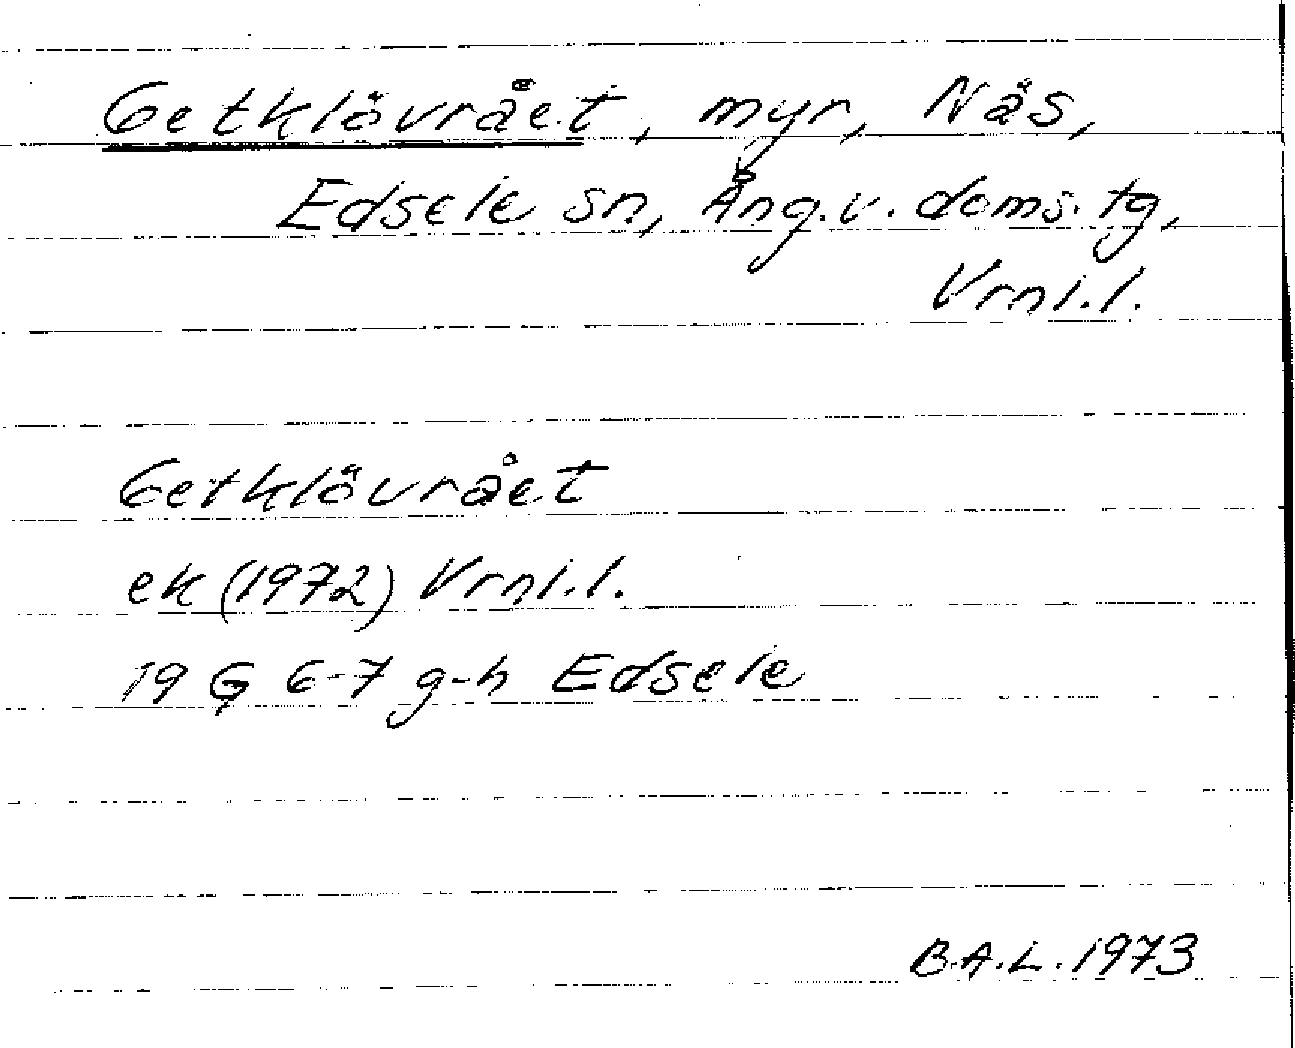 Getklövrået, myr, Näs,
Edsele sn, Ång.v. doms. tg,
Vrnl.l.
Getklövrået
ek (1972) Vrnl.l.
19 G 6-7 g-h Edsele
B.A.L. 1973